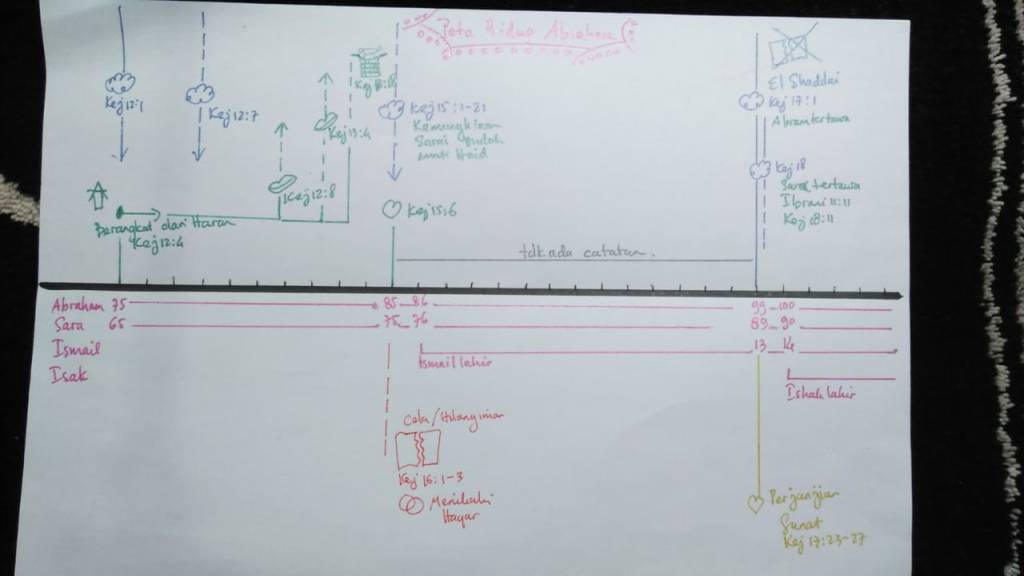 Peta Hidup Abraham
Kej 12:1
Kej 12:7
Kej 12:8
Kej 13:4
Kej 13:18
Kej 15:1-21
Kemungkinan
Sarai sudah
Haid
Kej 15:6
El Shaddai
Kej 17:1
Abram tertawa
Kej 18
Sara tertawa
Ibrani 11:11
Kej 18:11
Berangkat dari Haran
Kej 12:4
tdk ada catatan.
Abraham 75 85 86 99 100
Sara 65 75 76 89 90
Ismail 13 14
Ismail lahir
Isak
Ishak lahir
Kej 16:1-3
Menikahi
Hagar
Perjanjian
Sunat
Kej 17:23-27